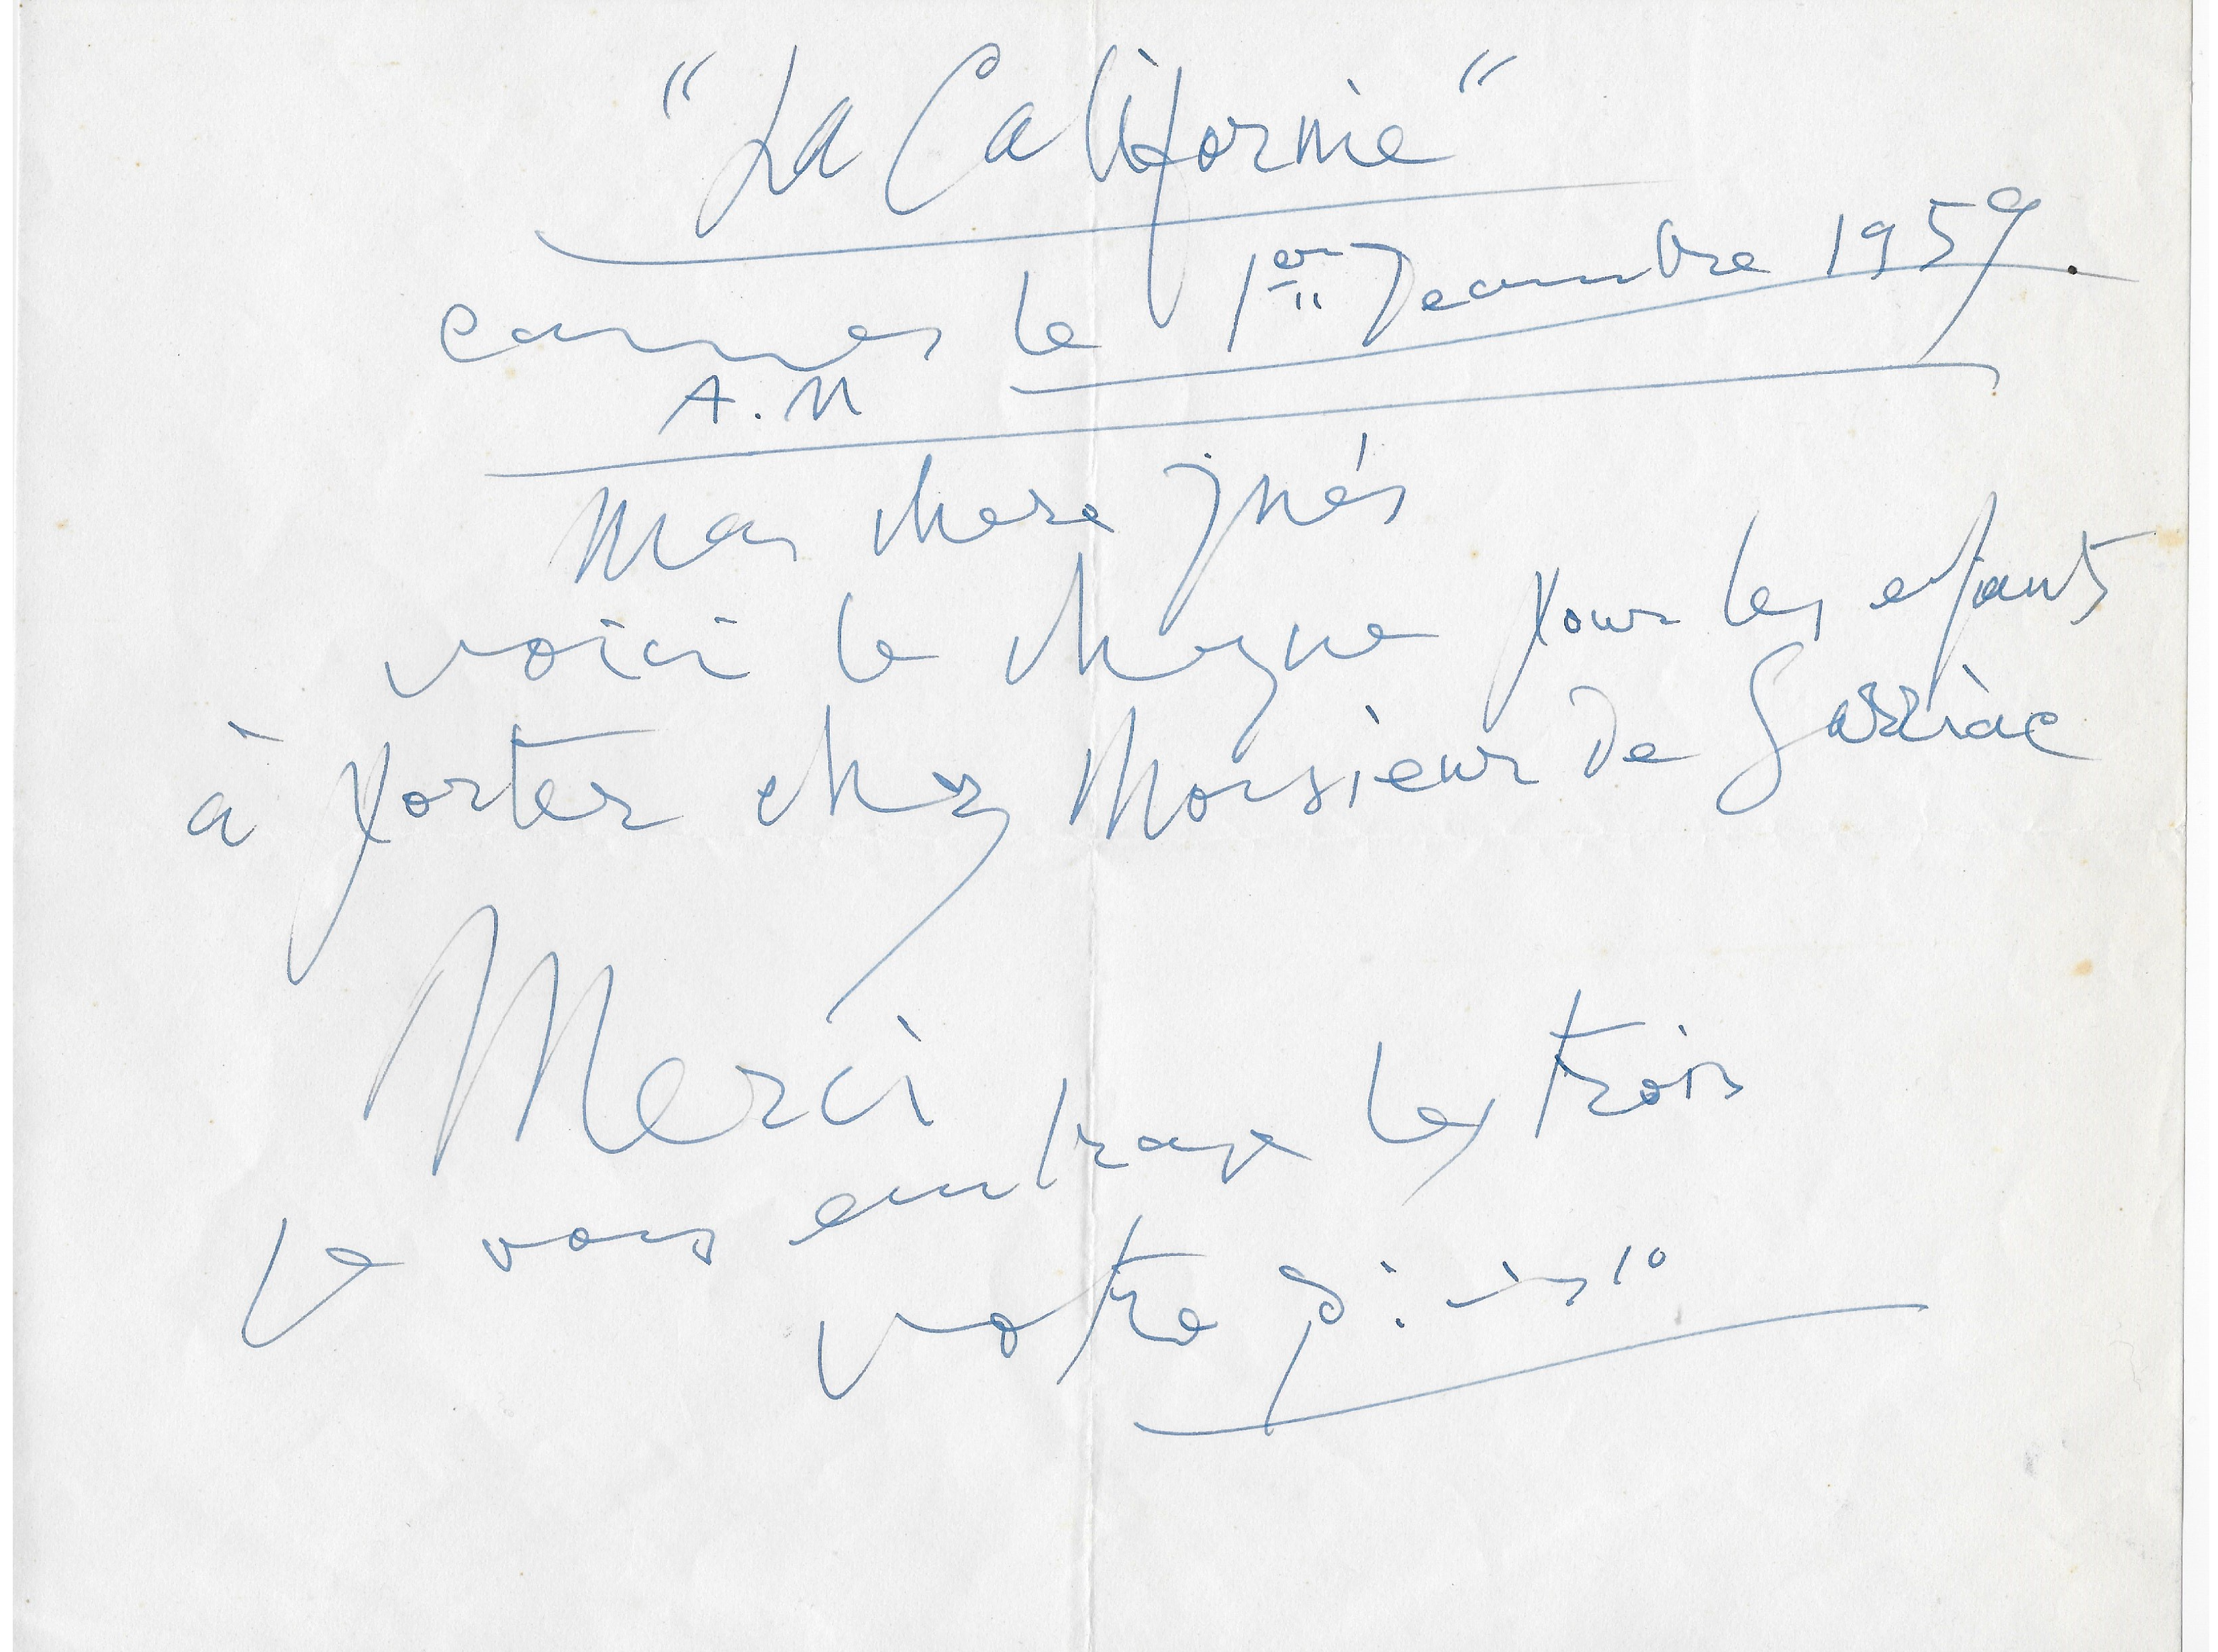 "La Californie"
Cannes le 1er Decembre 1959.
A.M
Ma chere Inés
voici le cheque pour les enfants
à porter chez Monsieur de Sarriac
Merci
Je vous embrasse les trois
votre Picasso